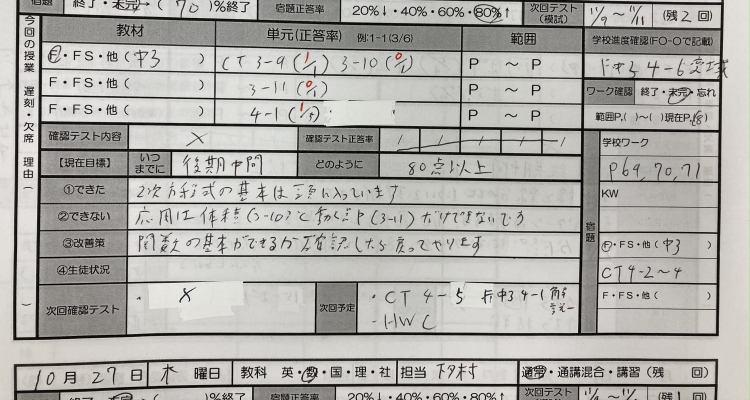 宿題 終了・未完→( 70 )%終了 宿題正答率 20%↓・40%・60%・80%↑ 次回テスト(模試) 11/9 ~ 11/11 (残 2 回)
今回の授業 遅刻・欠席 理由( )
教材 単元(正答率) 例:1-1(3/6) 範囲 学校進度確認(FO-Oで記載)
F・FS・他(中3 ) CT 3-9 (1/1) 3-10 (0/1) P ~ P 中3 4-6
F・FS・他( ) 3-11 (0/1) P ~ P ワーク確認 終了・未完・忘れ
F・FS・他( ) 4-1 P ~ P 範囲P.( )~( )現在P.
確認テスト内容 × 確認テスト正答率 / / / / / 学校ワーク
【現在目標】 いつまでに 後期中間 どのように 80点以上 P69,70,71
①できた 2次方程式の基本は頭に入っています KW
②できない 応用は体積(3-10)と動く点P(3-11)だけできないです
宿題
③改善策 関数の基本ができるか確認したら戻ってやります F・FS・他(中3 )
④生徒状況 CT4-2~4
F・FS・他( )
次回確認テスト × 次回予定 ・CT 4-5 中3 4-1
・HWC
10 月 27 日 木 曜日 教科 英・数・国・理・社 担当 下村 通常・通講混合・講習(残 回)
)%終了 宿題正答率 20%↓・40%・60%・80%↑ 次回テスト 回)